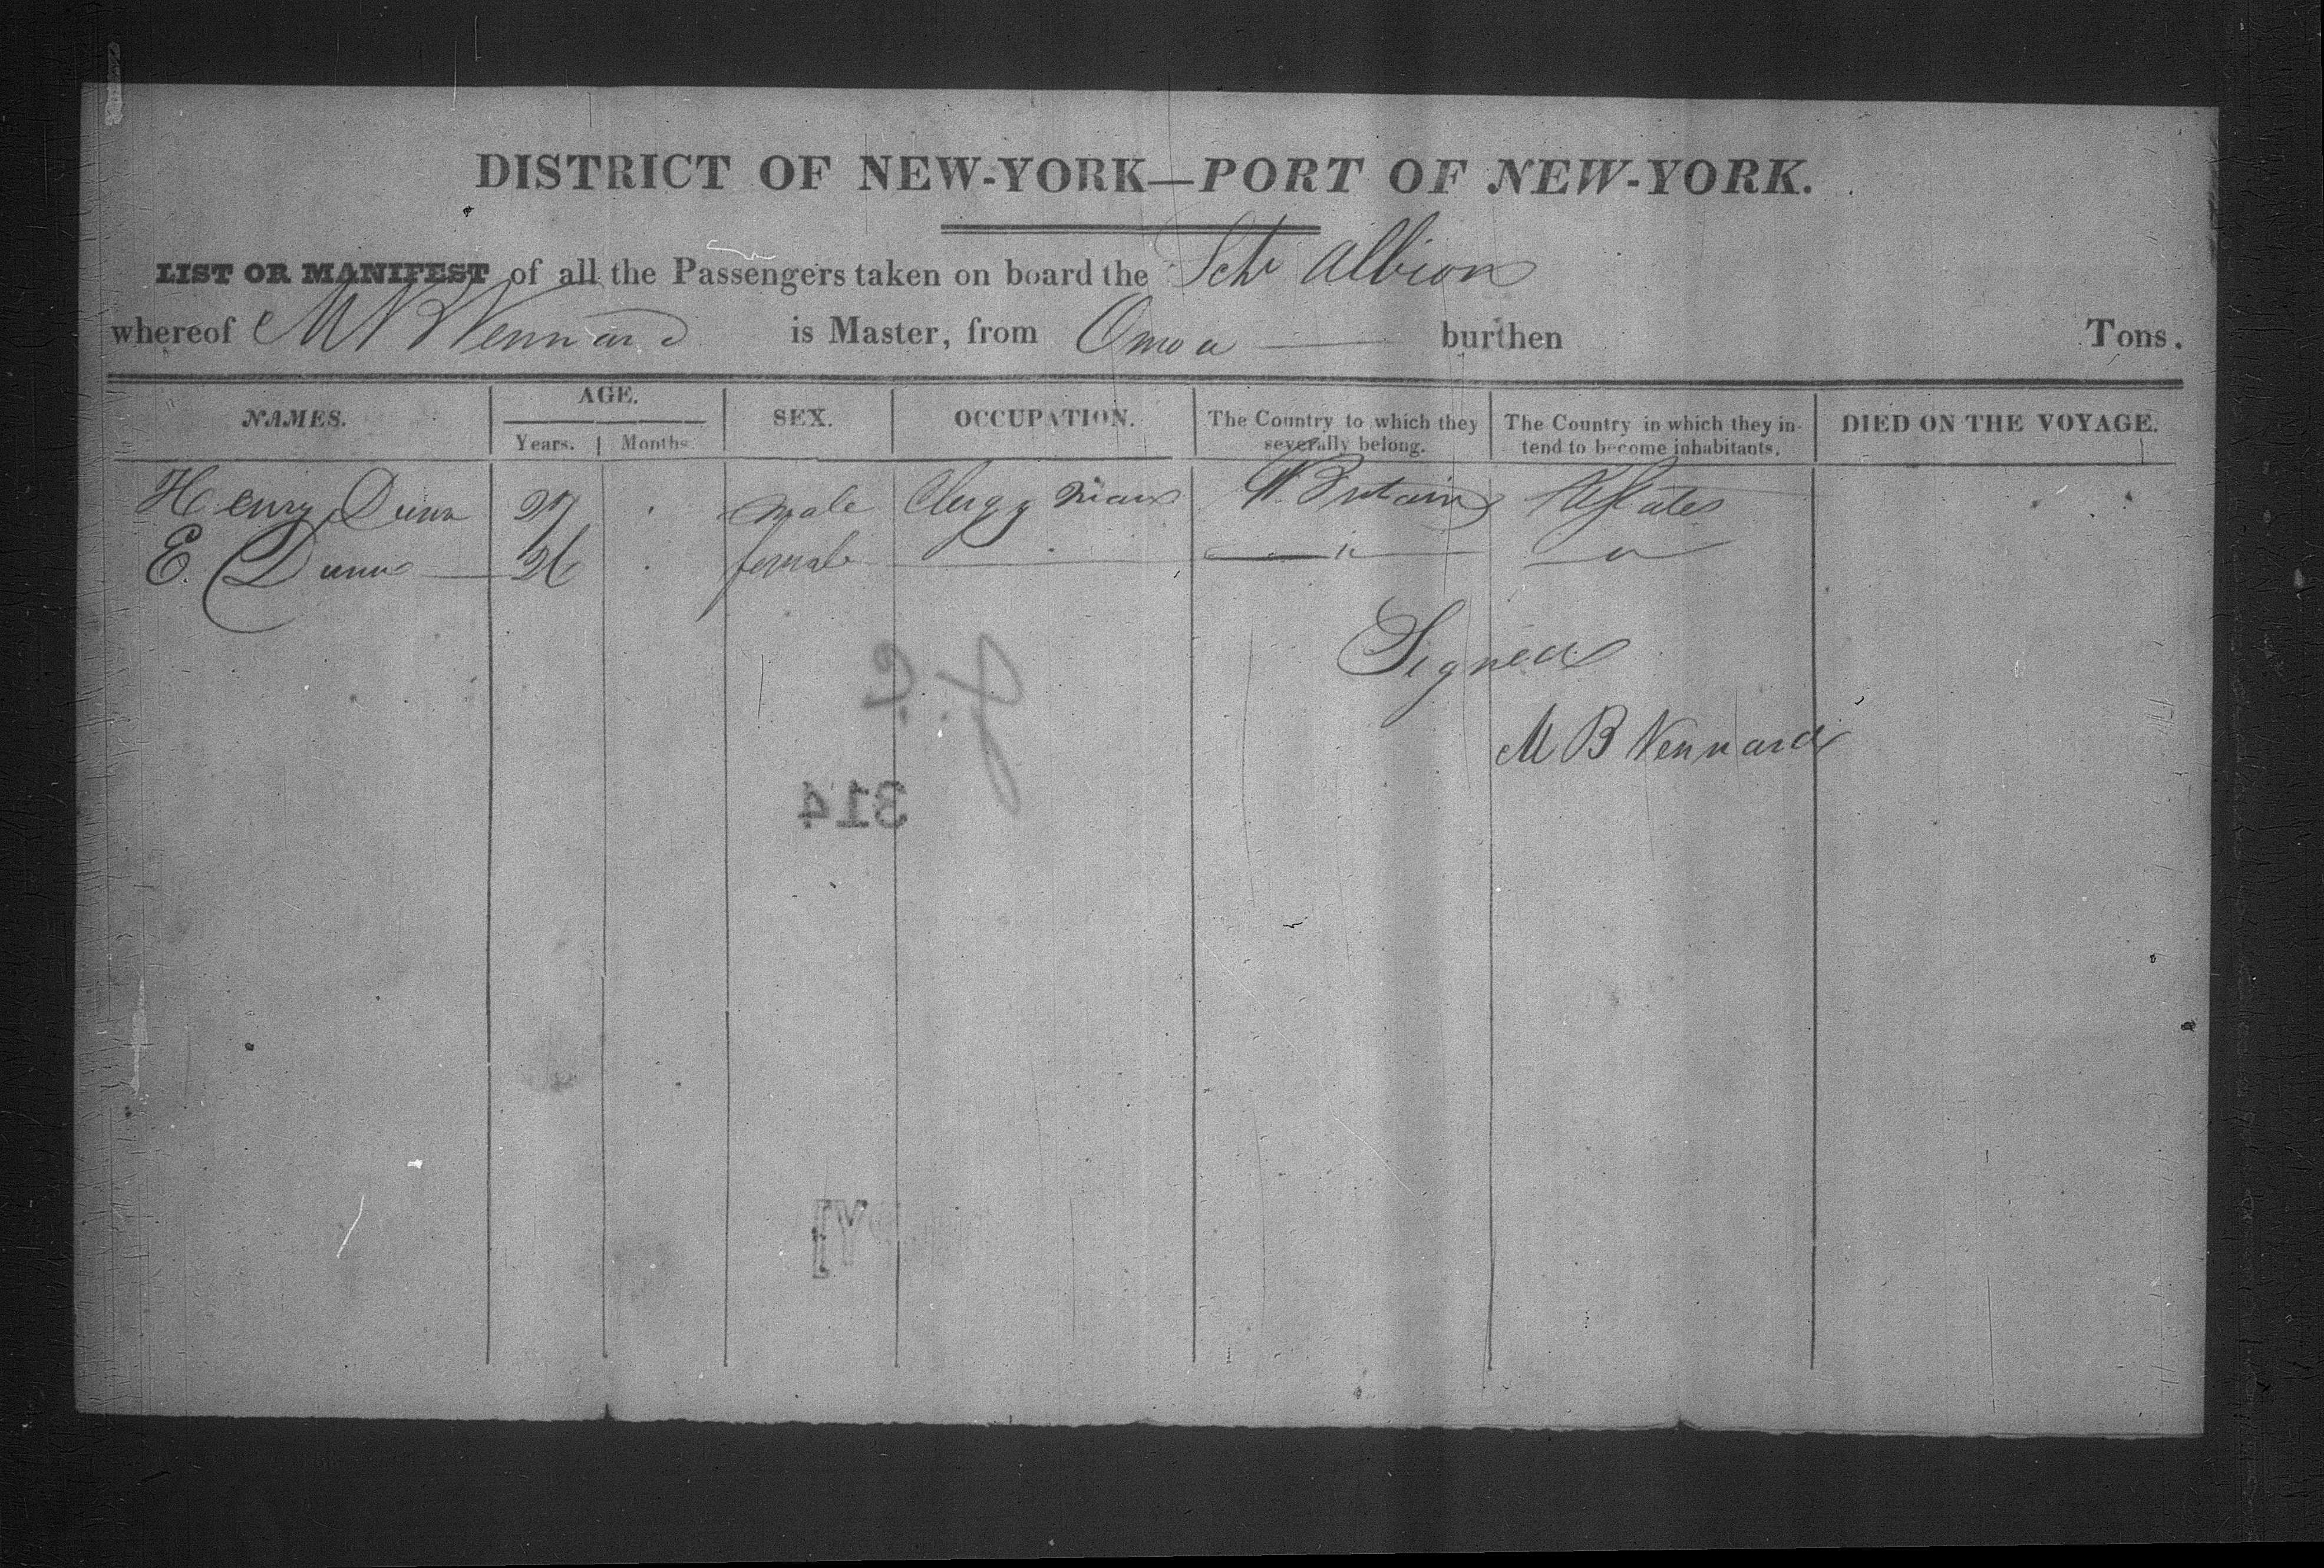 DISTRICT OF NEW-YORK—PORT OF NEW-YORK.
LIST OR MANIFEST of all the Passengers taken on board the Schr Albion
whereof M B Nennard is Master, from Omoa burthen Tons.
NAMES. AGE. SEX. OCCUPATION. The Country to which they severally belong. The Country in which they intend to become inhabitants. DIED ON THE VOYAGE.
Years. Months.
Henry Dunn 27 male Clergyman Britain States
E. Dunn 26 female
Signed
M B Nennard
314